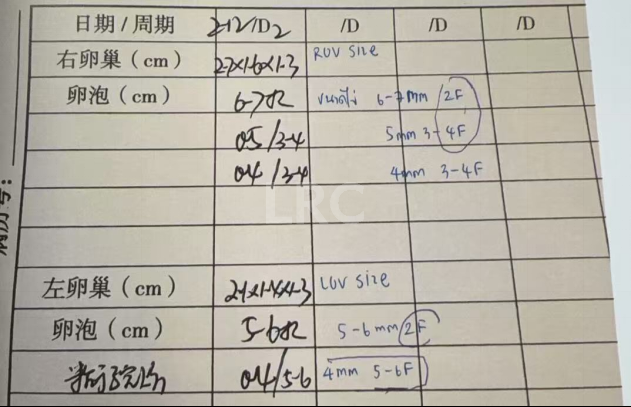 日期/周期 2-12/D2 /D /D /D
右卵巢（cm） 2.7×1.6×1.3 ROV size
卵泡（cm） 6-7 ขนาดไข่ 6-7mm 2F
0.5/3-4 5mm 3-4F
0.4/3-4 4mm 3-4F
LRC
左卵巢（cm） LOV size
卵泡（cm） 5-6 5-6mm 2F
0.4/5-6 4mm 5-6F
病历号：